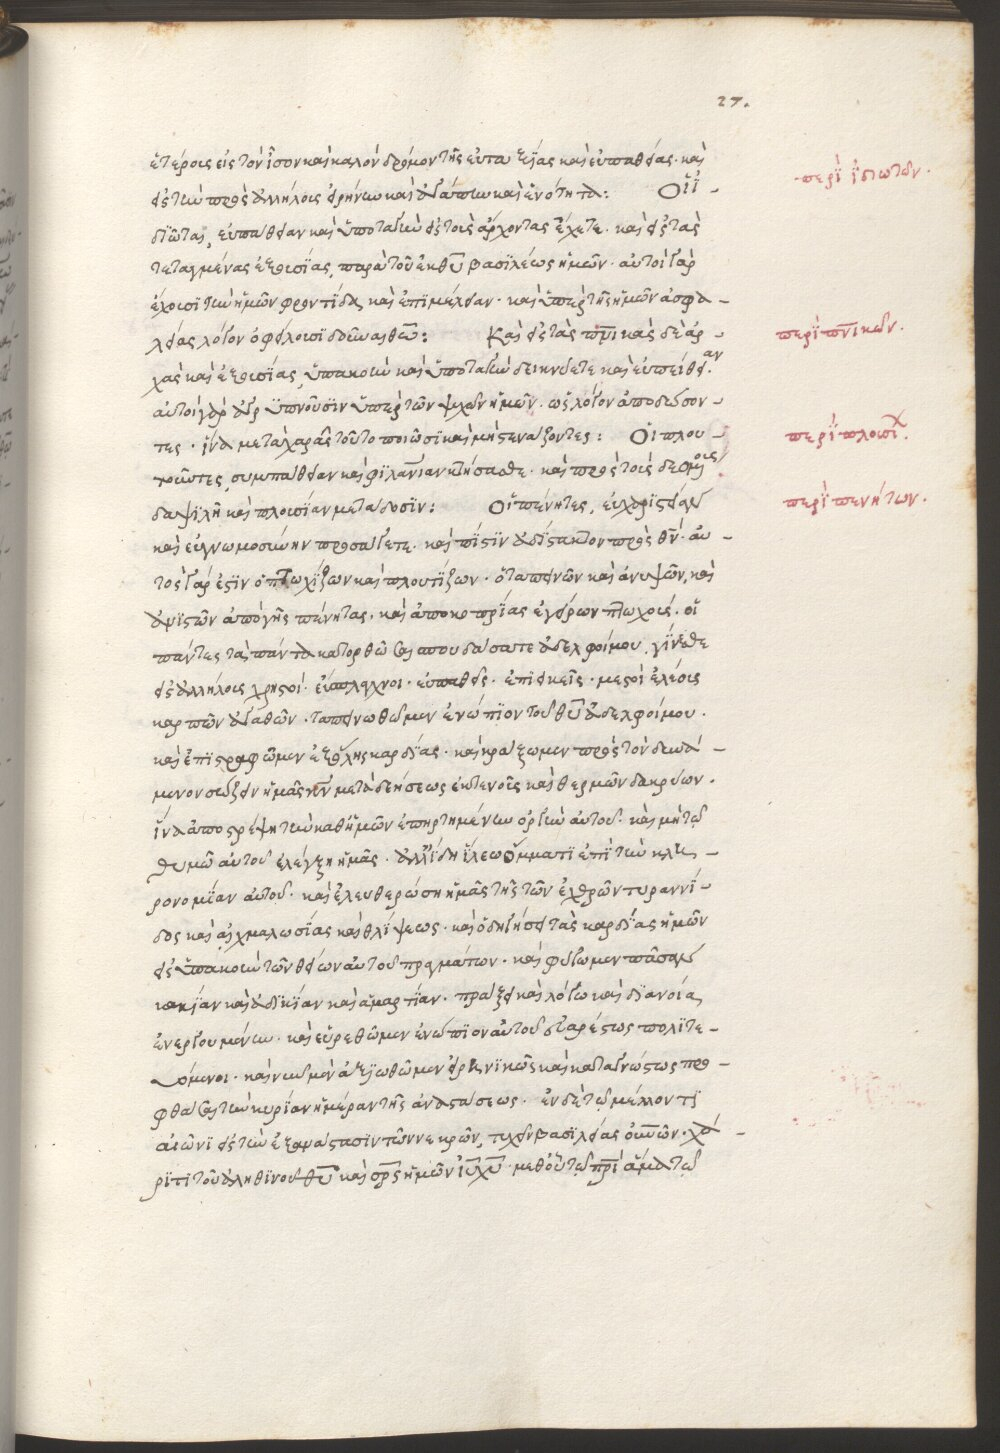 27.
ἑτέροις εἰς τὸν ἴσον καὶ καλὸν δρόμον τῆς εὐταξίας καὶ εὐπαθείας· καὶ
εἰς τὴν πρὸς ἀλλήλοις εἰρήνην καὶ ἀγάπην καὶ ἑνότητα: Οἱ ἰ-
περὶ ἰδιωτῶν.
διῶται, εὐπείθειαν καὶ ὑποταγὴν εἰς τοὺς ἄρχοντας ἔχετε· καὶ εἰς τὰς
τεταγμένας ἐξουσίας, παρὰ τοῦ ἐκ θῦ βασιλέως ἡμῶν· αὐτοὶ γὰρ
ἔχουσι τὴν ἡμῶν φροντίδα, καὶ ἐπιμέλειαν· καὶ ὑπὲρ τῆς ἡμῶν ἀσφα-
λείας λόγον ὀφείλουσι δοῦναι θεῷ: Καὶ εἰς τὰς πνικὰς δὲ ἀρ-
περὶ πνικῶν.
χὰς καὶ ἐξουσίας, ὑπακοὴν καὶ ὑποταγὴν δεικνύετε καὶ εὐπείθειαν.
αὐτοὶ γὰρ ἀγρυπνοῦσιν ὑπὲρ τῶν ψυχῶν ἡμῶν· ὡς λόγον ἀποδώσον-
τες· ἵνα μετὰ χαρᾶς τοῦτο ποιῶσι καὶ μὴ στενάζοντες: Οἱ πλου-
περὶ πλουσίχ.
τοῦντες, συμπάθειαν καὶ φιλανίαν κτήσασθε· καὶ πρὸς τοὺς δεομένοις
δαψιλῆ καὶ πλουσίαν μετάδοσιν: Οἱ πένητες, εὐχαριστείαν
περὶ πενήτων.
καὶ εὐγνωμοσύνην προσάγετε· καὶ πίστιν ἀδίστακτον πρὸς θν· αὐ-
τὸς γάρ ἐστιν ὁ πτωχίζων καὶ πλουτίζων· ὁ ταπεινῶν καὶ ἀνυψῶν, καὶ
ἀνιστῶν ἀπὸ γῆς πένητας· καὶ ἀπὸ κοπρίας ἐγείρων πτωχούς· οἱ
πάντες τὰ πάντα κατορθῶσαι σπουδάσατε ἀδελφοί μου· γίνεσθε
εἰς ἀλλήλοις χρηστοί· εὔσπλαγχνοι· εὐπαθεῖς· ἐπιεικεῖς· μεστοὶ ἐλέους
καρπῶν ἀγαθῶν· ταπεινωθῶμεν ἐνώπιον τοῦ θῦ ἀδελφοί μου·
καὶ ἐπιστραφῶμεν ἐξ ὅλης καρδίας· καὶ κράξωμεν πρὸς τὸν δυνά-
μενον σώζειν ἡμᾶς νῦν μετὰ δεήσεως ἐκτενοῦς καὶ θερμῶν δακρύων·
ἵνα ἀποστρέψῃ τὴν καθ' ἡμῶν ἐπηρτημένην ὀργὴν αὐτοῦ· καὶ μὴ τῷ
θυμῷ αὐτοῦ ἐλέγξῃ ἡμᾶς· ἀλλ' ἴδῃ ἵλεῳ ὄμματι ἐπὶ τὴν κλη-
ρονομίαν αὐτοῦ· καὶ ἐλευθερώσῃ ἡμᾶς τῆς τῶν ἐχθρῶν τυραννί-
δος καὶ αἰχμαλωσίας καὶ θλίψεως· καὶ ὁδηγήσει τὰς καρδίας ἡμῶν
εἰς ὑπακοὴν τῶν θείων αὐτοῦ προσταγμάτων· καὶ φύγωμεν πᾶσαν
κακίαν καὶ ἀδικίαν καὶ ἁμαρτίαν· πράξει καὶ λόγῳ καὶ διανοίᾳ
ἐνεργουμένην· καὶ εὑρεθῶμεν ἐνώπιον αὐτοῦ εὐαρέστως πολιτε-
υόμενοι· καὶ νῦν μὲν ἀξιωθῶμεν εἰρηνικῶς καὶ ἀκαταγνώστως προ-
φθάσαι τὴν κυρίαν ἡμέραν τῆς ἀναστάσεως· ἐν δὲ τῷ μέλλοντι
αἰῶνι εἰς τὴν ἐξανάστασιν τῶν νεκρῶν, τυχεῖν βασιλείας οὐνῶν· χά-
ριτι τοῦ ἀληθινοῦ θῦ καὶ σρς ἡμῶν ἰῦ χῦ· μεθ' οὗ τῷ πρὶ ἅμα τῷ